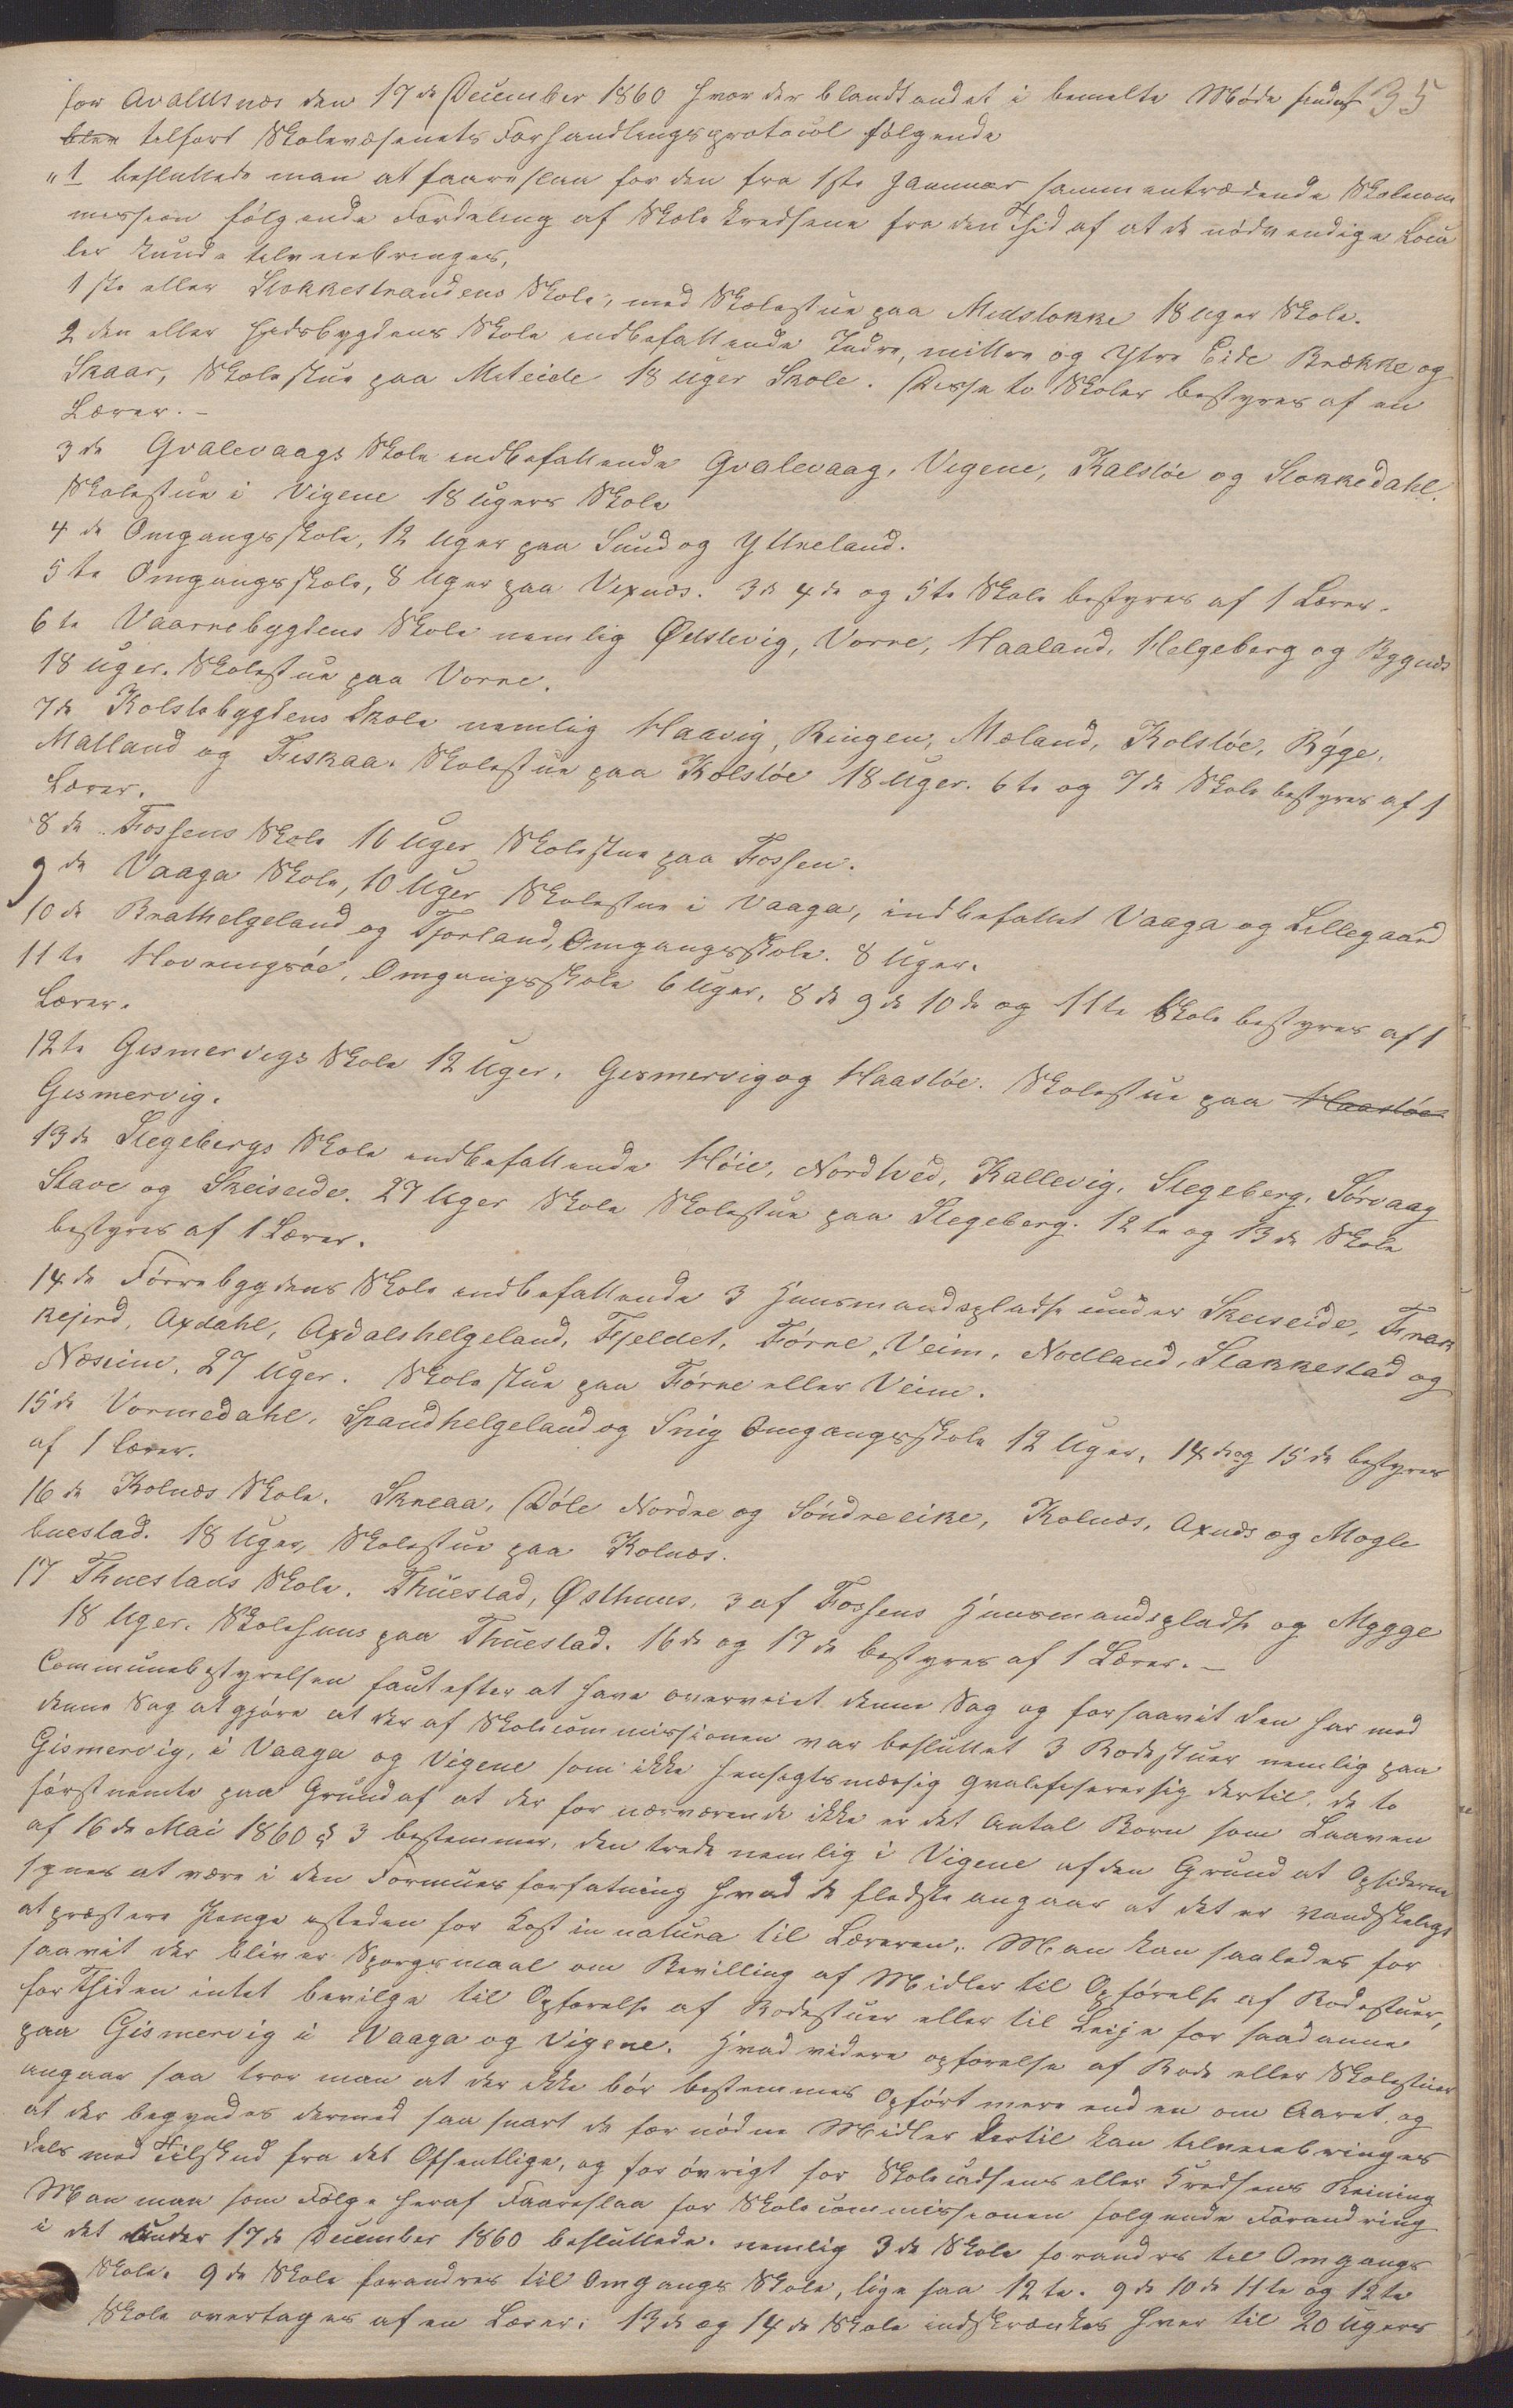 for Avaldsnæs den 17de December 1860 hvor der blandt andet i bemelte Møde findes 135
blev tilført Skolevæsenets Forhandlingsprotocol følgende
"1 besluttede man at faareslaa for den fra 1ste Januar sammentrædende Skolecom
mission følgende Fordeling af Skole kredsene fra den Tid af at de nødvendige Loca
ler kunde tilveiebringes,
1ste eller Stokkestrandens Skole, med Skolestue paa Midstokke 18 Uger Skole.
2den eller Eidsbygdens Skole indbefattende Indre, mittre og Ytre Eide Brække og
Skaar, Skolestue paa Miteide 18 Uger Skole. Disse to Skoler bestyres af en
Lærer. –
3de Gvalevaags Skole indbefattende Gvalevaag, Vigene, Kalstøe og Stokkedahl.
Skolestue i Vigene 18 Ugers Skole
4de Omgangsskole, 12 Uger paa Sund og Yttreland.
5te Omgangsskole, 8 Uger paa Vixnæs. 3de 4de og 5te Skole bestyres af 1 Lærer.
6te Vaarrebygdens Skole nemlig Ødstevig, Vorre, Haaland, Helgeberg og Bygnæs
18 Uger. Skolestue paa Vorre.
7de Kolstøbygdens Skole nemlig Haavig, Ringen, Mæland, Kolstøe, Bøge,
Malland og Fiskaa. Skolestue paa Kolstøe 18 Uger. 6te og 7de Skole bestyres af 1
Lærer.
8de Fossens Skole 16 Uger Skolestue paa Fossen.
9de Vaaga Skole, 10 Uger Skolestue i Vaaga, indbefattet Vaaga og Lillegaard
10de Brathelgeland og Tjorland, Omgangsskole. 8 Uger.
11te Hovringsøe, Omgangsskole 6 Uger, 8de 9de 10de og 11te Skole bestyres af 1
Lærer.
12te Gismervigs Skole 12 Uger. Gismervig og Haastøe. Skolestue paa Haastøe
Gismervig.
13de Stegebergs Skole indbefattende Høie, Nordtved, Kallevig, Stegeberg, Sørvaag
Stave og Skeiseide. 27 Uger Skole Skolestue paa Stegeberg. 12te og 13de Skole
bestyres af 1 Lærer.
14de Førrebygdens Skole indbefattende 3 Huusmandspladse under Skeiseide, Frak
kejerd, Axdahl, Axdalshelgeland, Fjeldet, Førre, Veim, Nodland, Stakkestad og
Næseim. 27 Uger. Skolestue paa Førre eller Veim.
15de Vormedahl, Spandhelgeland og Snig Omgangsskole 12 Uger, 14de og 15de bestyres
af 1 Lærer.
16de Kolnæs Skole. Skreaa, Døle Nordre og Søndreeike, Kolnæs, Axnæs og Mogle
buestad. 18 Uger, Skolestue paa Kolnæs.
17 Thuestads Skole. Thuestad, Østhuus, 3 af Fossens Huusmandspladse og Mygge
18 Uger. Skolehuus paa Thuestad. 16de og 17de bestyres af 1 Lærer. –
Communebestyrelsen fant efter at have overveiet denne Sag og forsaavit den har med
denne Sag at gjøre at der af Skolecommissionen var besluttet 3 Rodestuer nemlig paa
Gismervig, i Vaaga og Vigene som ikke hensigtsmæssig qvalefiserer sig dertil, de to
førstnemte paa Grund af at der for nærværende ikke er det Antal Børn som Loven
af 16de Mai 1860 § 3 bestemmer, den trede nemlig i Vigene af den Grund at Opsiderne
synes at være i den Formuesforfatning hvad de fledste angaar at det er vandskeligt
at præstere Penge isteden for Kost in natura til Læreren. Man kan saaledes for
saavit der bliver Spørgsmaal om Bevilling af Midler til Opførelse af Rodestuer,
for Tiden intet bevilge til Opførelse af Rodestuer eller til Leije for saadanne
paa Gismervig i Vaaga og Vigene. Hvad videre opførelse af Rode eller Skolestuer
angaar saa tror man at der ikke bør bestemmes Opført mere end en om Aaret og
at der begyndes dermed saa snart de fornødne Midler dertil kan tilveiebringes
dels med Tilskud fra det Offentlige, og for øvrigt for Skolecadsens eller Kredsens Reining
Man maa som Følge heraf Faareslaa for Skolecommissionen følgende Forandring
i det under 17de December 1860 besluttede. nemlig 3de Skole forandres til Omgangs
Skole. 9de Skole forandres til Omgangs Skole, lige saa 12te. 9de 10de 11te og 12te
Skole overtages af en Lærer. 13de og 14de Skole indskrænkes hver til 20 Ugers